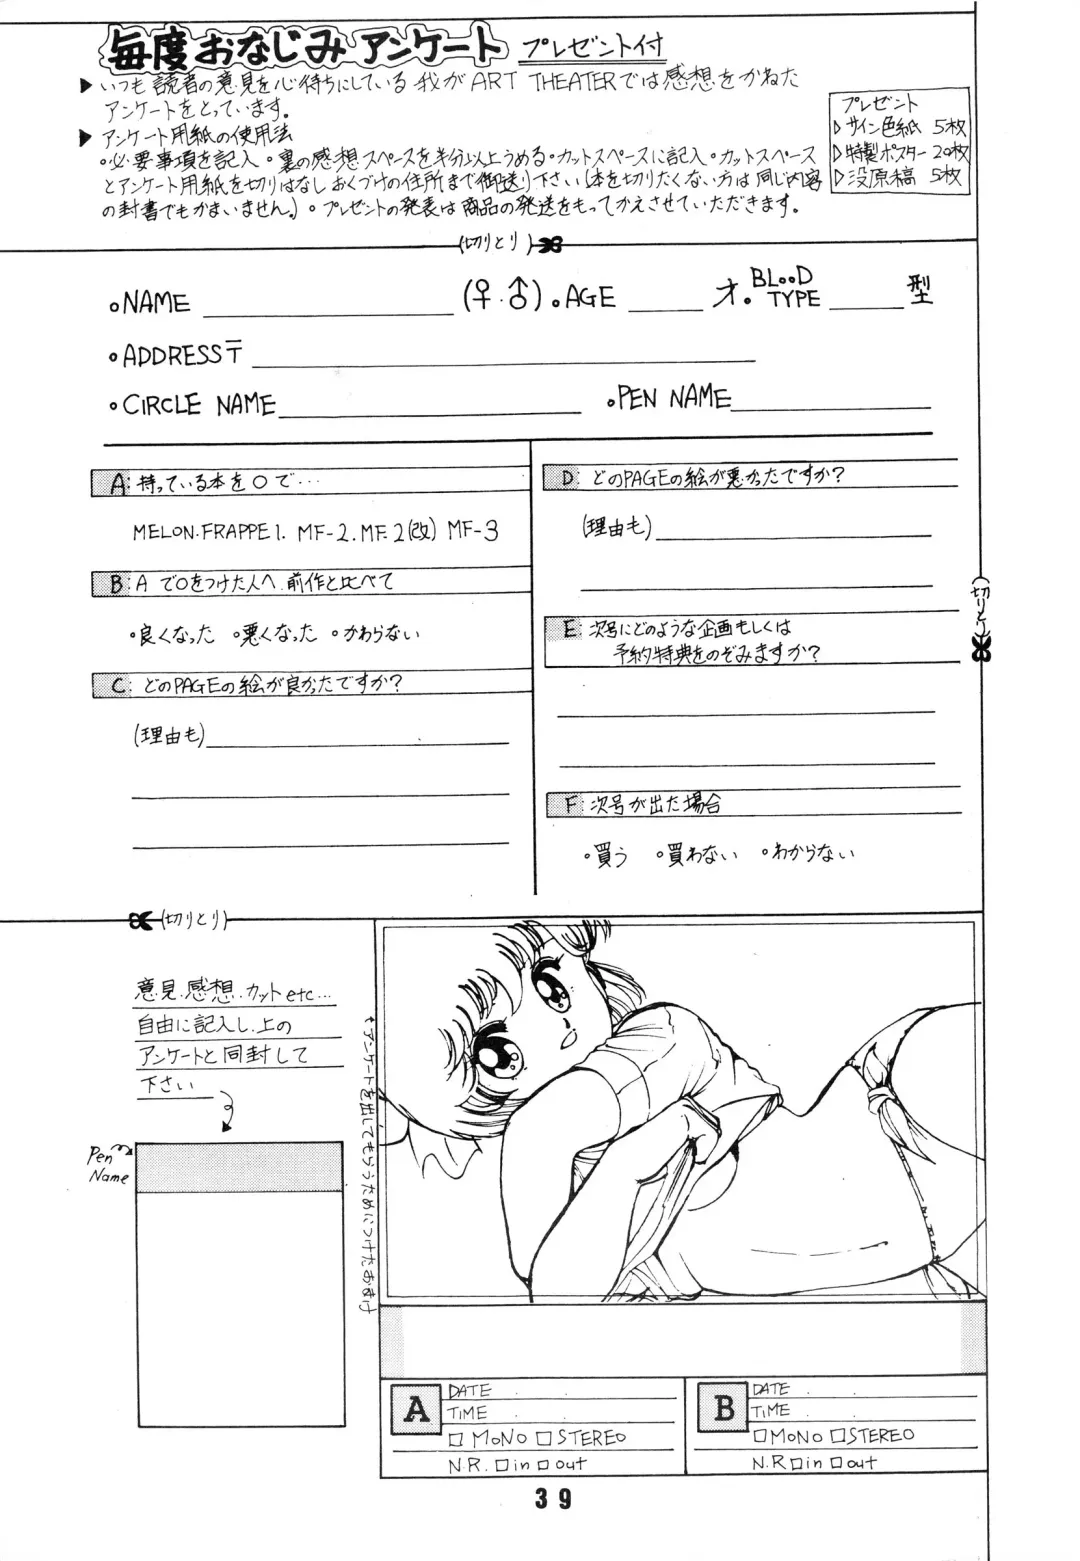 毎度おなじみアンケート プレゼント付
▶いつも読者の意見を心待ちにしている我がART THEATERでは感想をかねた
アンケートをとっています。
▶アンケート用紙の使用法
•必要事項を記入•裏の感想スペースを半分以上うめる•カットスペースに記入•カットスペース
とアンケート用紙を切りはなしおくづけの住所まで御送り下さい(本を切りたくない方は同じ内容
の封書でもかまいません。)•プレゼントの発表は商品の発送をもってかえさせていただきます。
プレゼント
▷サイン色紙 5枚
▷特製ポスター 20枚
▷没原稿 5枚
(切りとり)
•NAME (♀・♂)•AGE 才•BLOOD TYPE 型
•ADDRESS〒
•CIRCLE NAME •PEN NAME
A 持っている本を○で…
MELON.FRAPPE1. MF-2.MF.2(改) MF-3
B Aで○をつけた人へ.前作と比べて
•良くなった •悪くなった •かわらない
C どのPAGEの絵が良かったですか?
(理由も)
D どのPAGEの絵が悪かったですか?
(理由も)
E 次号にどのような企画もしくは
予約特典をのぞみますか?
F 次号が出た場合
•買う •買わない •わからない
(切りとり)
(切りとり)
意見.感想.カットetc…
自由に記入し.上の
アンケートと同封して
下さい
Pen
Name
↑アンケートを出してもらうためにつけたおまけ
A
DATE . .
TIME . .
□MONO □STEREO
N.R. □in □out
B
DATE . .
TIME . .
□MONO □STEREO
N.R □in □out
39